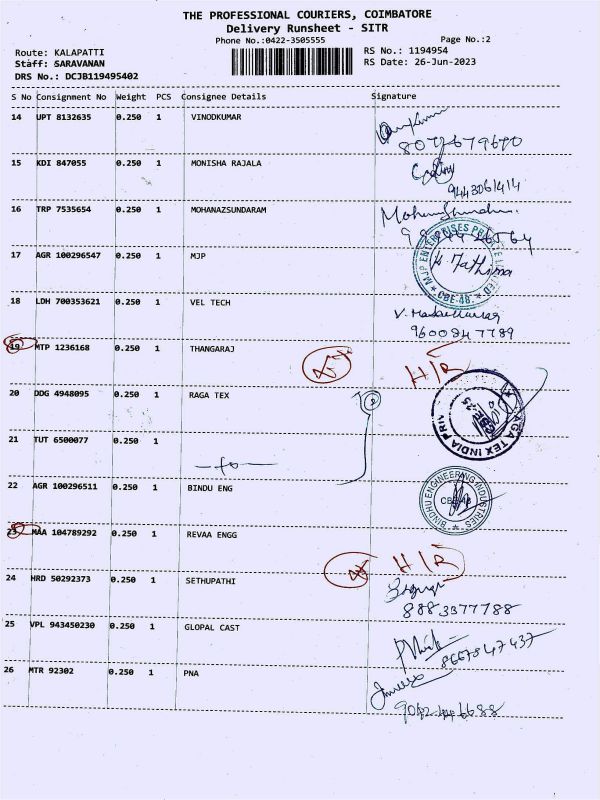 THE PROFESSIONAL COURIERS, COIMBATORE
Delivery Runsheet - SITR
Phone No.:0422-3505555
Page No.:2
Route: KALAPATTI
RS No.: 1194954
Staff: SARAVANAN
RS Date: 26-Jun-2023
DRS No.: DCJB119495402
S No Consignment No Weight PCS Consignee Details Signature
14 UPT 8132635 0.250 1 VINODKUMAR
15 KDI 847055 0.250 1 MONISHA RAJALA
9443061414
16 TRP 7535654 0.250 1 MOHANAZSUNDARAM
17 AGR 100296547 0.250 1 MJP
MJP ENTERPRISES PRIVATE LIMITED
CBE-48.
18 LDH 700353621 0.250 1 VEL TECH
9600947789
19 MTP 1236168 0.250 1 THANGARAJ
H/R
20 DDG 4948095 0.250 1 RAGA TEX
RAGA TEX INDIA PRIV
21 TUT 6500077 0.250 1
22 AGR 100296511 0.250 1 BINDU ENG
BINDHU ENGINEERING INDUSTRIES
CBE-48
23 MAA 104789292 0.250 1 REVAA ENGG
H/R
24 HRD 50292373 0.250 1 SETHUPATHI
8883377788
25 VPL 943450230 0.250 1 GLOPAL CAST
8667847437
26 MTR 92302 0.250 1 PNA